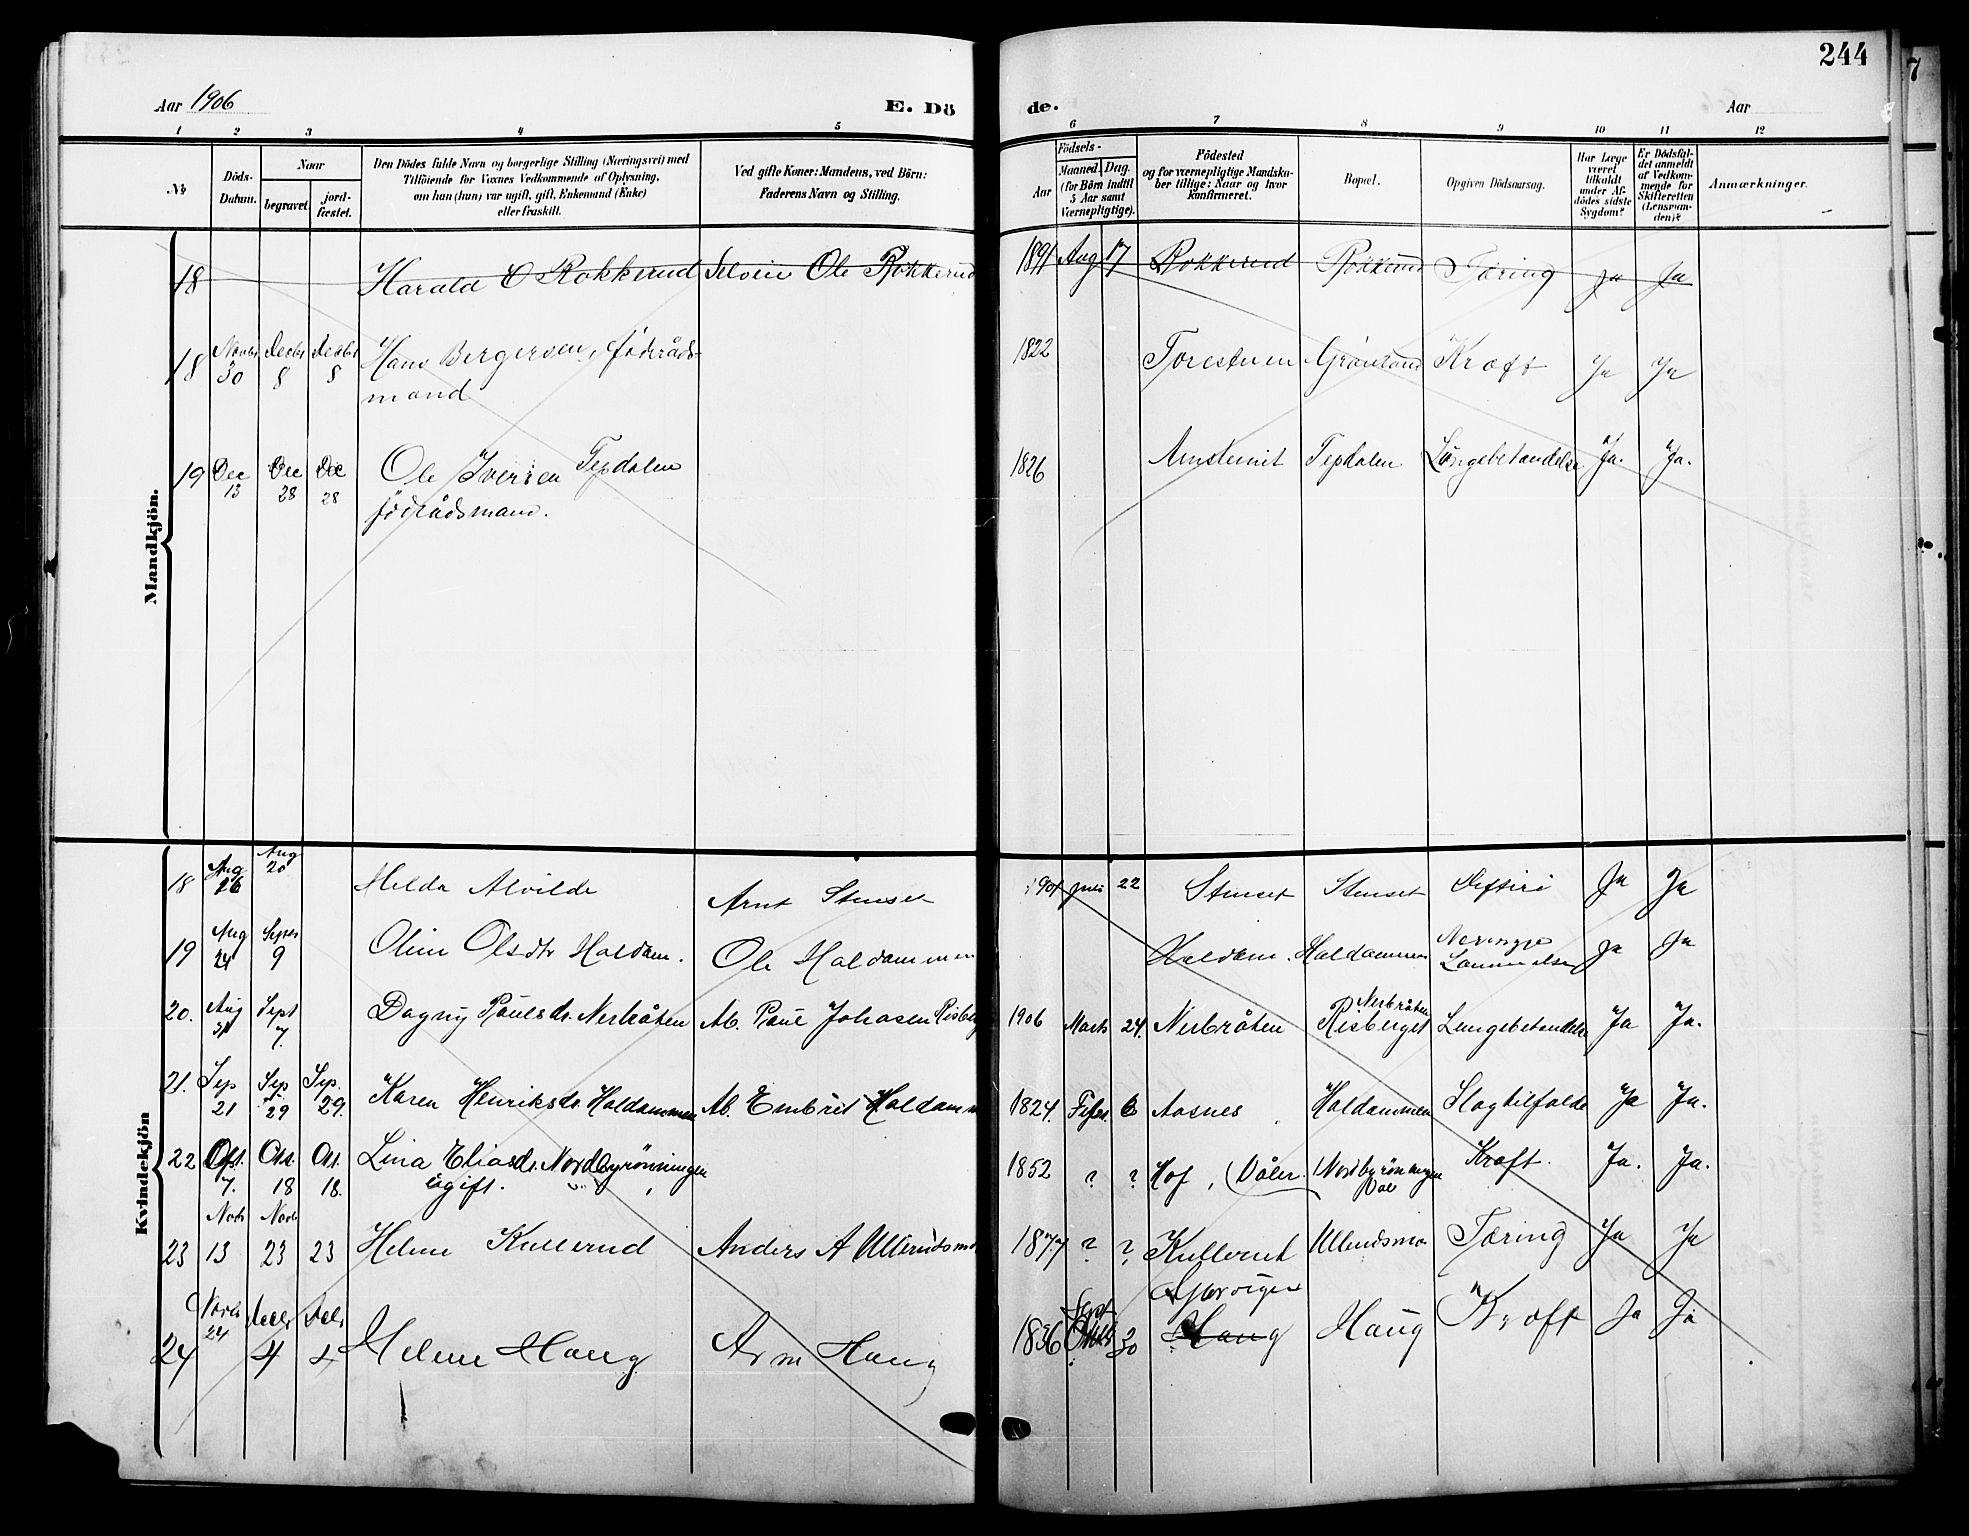 244
7
Aar 1906 E. Dö de. Aar
1 2 3 4 5 6 7 8 9 10 11 12
№ Döds-Datum. Naar begravet. jord-fæstet. Den Dödes fulde Navn og borgerlige Stilling (Næringsvei) med Tilföiende for Voxnes Vedkommende af Oplysning, om han (hun) var ugift, gift, Enkemand (Enke) eller fraskilt. Ved gifte Koner: Mandens, ved Börn: Faderens Navn og Stilling. Födsels- Aar Maaned. Dag. (for Börn indtil 5 Aar samt Værnepligtige). Födested og for værnepligtige Mandska-ber tillige: Naar og hvor konfirmeret. Bopæl. Opgiven Dödsaarsag. Har Læge været tilkaldt under Af-dödes sidste Sygdom? Er Dödsfal-det anmeldt af Vedkom-mende for Skifteretten (Lensman-den)? Anmærkninger.
Mandkjön.
18 Harald O Rokkerud Selveier Ole Rokkerud 1891 Aug 17 Rokkerud Rokkerud Tæring Ja Ja
18 Novbr 30 Decbr 8 Decbr 8 Hans Bergersen, föderåds-
mand 1822 Torestuen Grönland Kræft Ja Ja
19 Dec 13 Dec 28 Dec 28 Ole Iversen Tepdalen
föderådsmand. 1826 Tepdalen Lungebetændelse Ja. Ja.
Kvindekjön
18 Aug 26 Aug 20 Helda Alvilde Arnt Stenset 1901 22 Stenset Stenset Ja Ja
19 Aug 24 Septr 9 Oline Olsdtr Haldam. Ole Haldammen Haldam. Haldammen Ja Ja
20. Aug 31 Sept 7. Dagny Paulsdr. Nerbråten Ab. Paul Johasen Risberg 1906 Marts 24. Nerbråten Nerbråten Risberget Lungebetændelse Ja Ja.
21. Sep 21 Sep 29 Sep. 29. Karen Henriksdr. Haldammen Ab. Embret Haldamm 1824. Febr. 6 Aasnes Haldammen Slagtilfælde Ja Ja.
22 Okt. 7. Okt. 18 Okt. 18. Lina Eliasdr. Nordbyrönningen
ugift. 1852 ? ? Hof, (Våler. Nordbyrönningen Kræft. Ja. Ja.
23 Novbr 13 Novbr 23 23 Helene Kullerud Anders A Ullerudsmo 1877 ? ? Kullerud Ullerudsmo Tæring Ja Ja
24 Novbr 24 Decbr 4 Decbr 4 Helene Haug Arne Haug 1836 Sept 30 Haug Haug Kræft Ja Ja